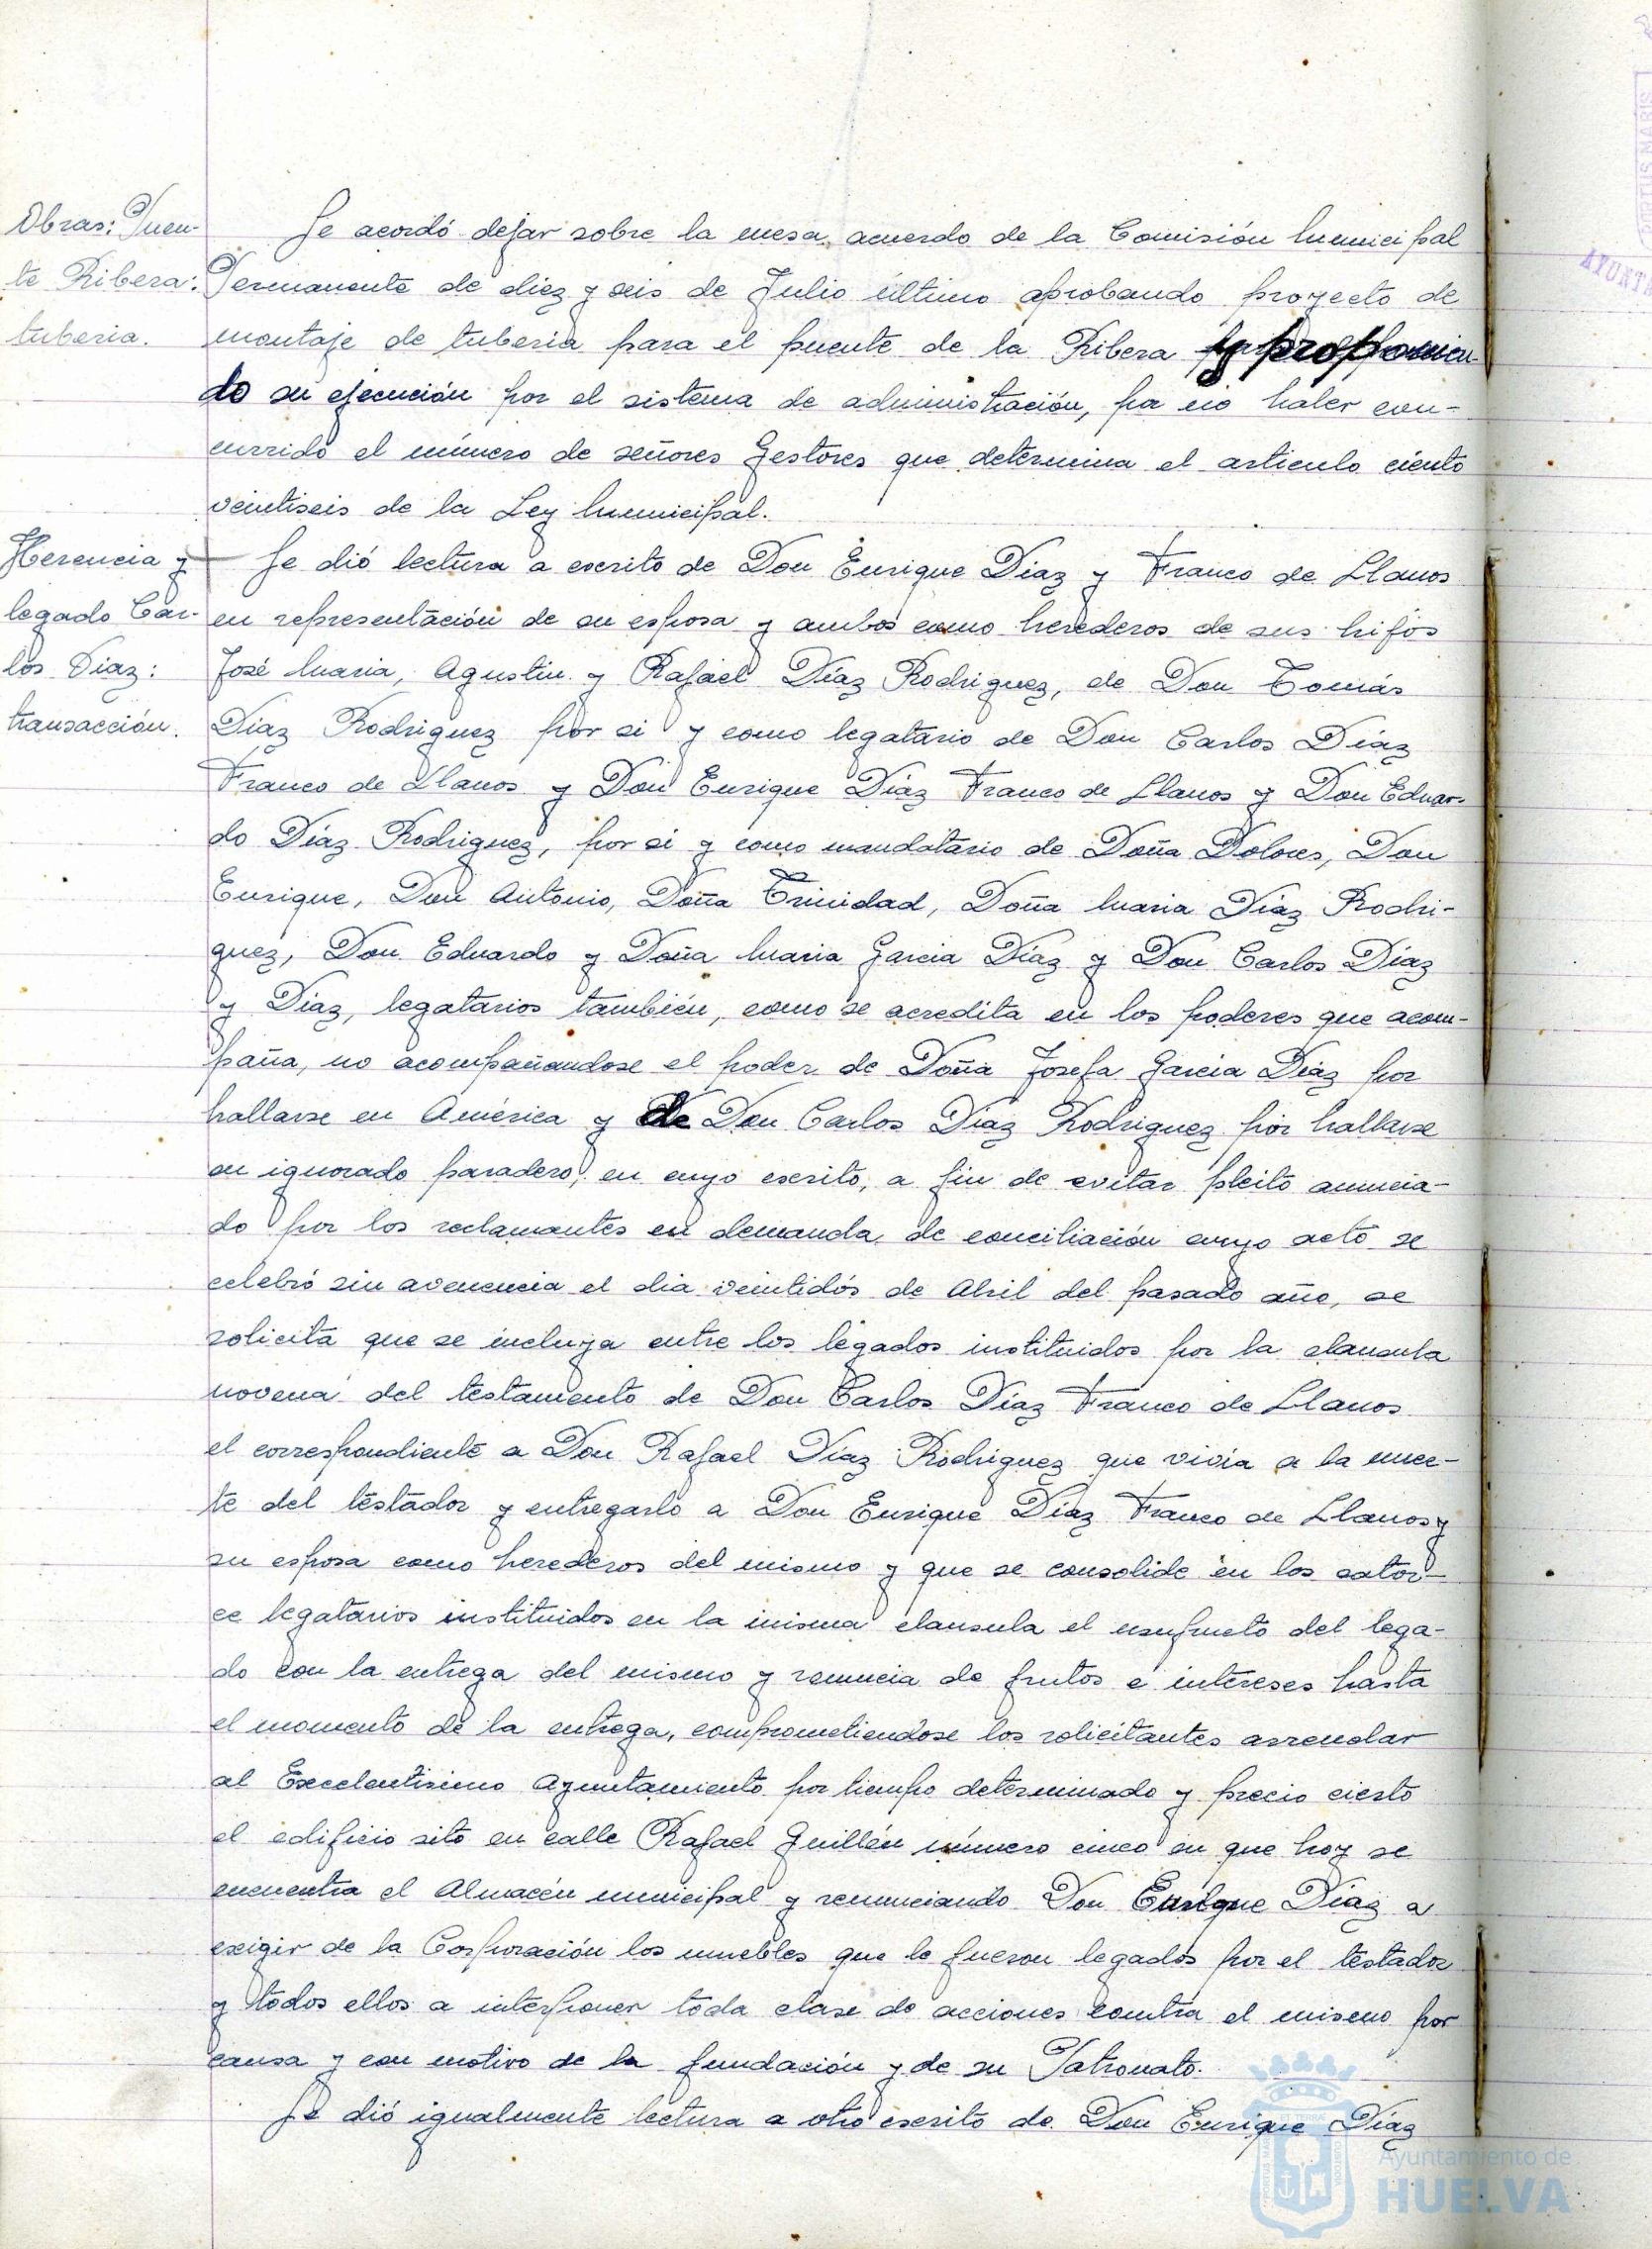 Obras: Puen-
te Ribera:
tuberia.
Se acordó dejar sobre la mesa acuerdo de la Comisión Municipal
Permanente de diez y seis de Julio último aprobando proyecto de
montaje de tuberia para el puente de la Ribera y proponien-
do su ejecución por el sistema de administración, por no haber con-
currido el número de señores Gestores que determina el articulo ciento
veintiseis de la Ley Municipal.
Herencia y
legado Car-
los Diaz:
transacción.
Se dió lectura a escrito de Don Enrique Diaz y Franco de Llanos
en representación de su esposa y ambos como herederos de sus hijos
José Maria, Agustin y Rafael Díaz Rodriguez, de Don Tomás
Diaz Rodriguez por si y como legatario de Don Carlos Díaz
Franco de Llanos y Don Enrique Díaz Franco de Llanos y Don Eduar-
do Díaz Rodriguez, por si y como mandatario de Doña Dolores, Don
Enrique, Don Antonio, Doña Trinidad, Doña Maria Díaz Rodri-
guez, Don Eduardo y Doña Maria Garcia Díaz y Don Carlos Díaz
y Diaz, legatarios también, como se acredita en los poderes que acom-
paña, no acompañandose el poder de Doña Josefa Garcia Diaz por
hallarse en América y de Don Carlos Diaz Rodriguez por hallarse
en ignorado paradero, en cuyo escrito, a fin de evitar pleito anuncia-
do por los reclamantes en demanda de conciliación cuyo acto se
celebró sin avenencia el dia veintidós de Abril del pasado año, se
solicita que se incluya entre los legados instituidos por la clausula
novena del testamento de Don Carlos Diaz Franco de Llanos
el correspondiente a Don Rafael Diaz Rodriguez que vivia a la muer-
te del testador y entregarlo a Don Enrique Diaz Franco de Llanos y
su esposa como herederos del mismo y que se consolide en los cator-
ce legatarios instituidos en la misma clausula el usufructo del lega-
do con la entrega del mismo y renuncia de frutos e intereses hasta
el momento de la entrega, comprometiendose los solicitantes arrendar
al Excelentisimo Ayuntamiento por tiempo determinado y precio cierto
el edificio sito en calle Rafael Guillén número cinco en que hoy se
encuentra el Almacén municipal y renunciando Don Enrique Diaz a
exigir de la Corporación los muebles que le fueron legados por el testador
y todos ellos a interponer toda clase de acciones contra el mismo por
causa y con motivo de la fundación y de su Patronato.
Se dió igualmente lectura a otro escrito de Don Enrique Díaz
Ayuntamiento de
HUELVA